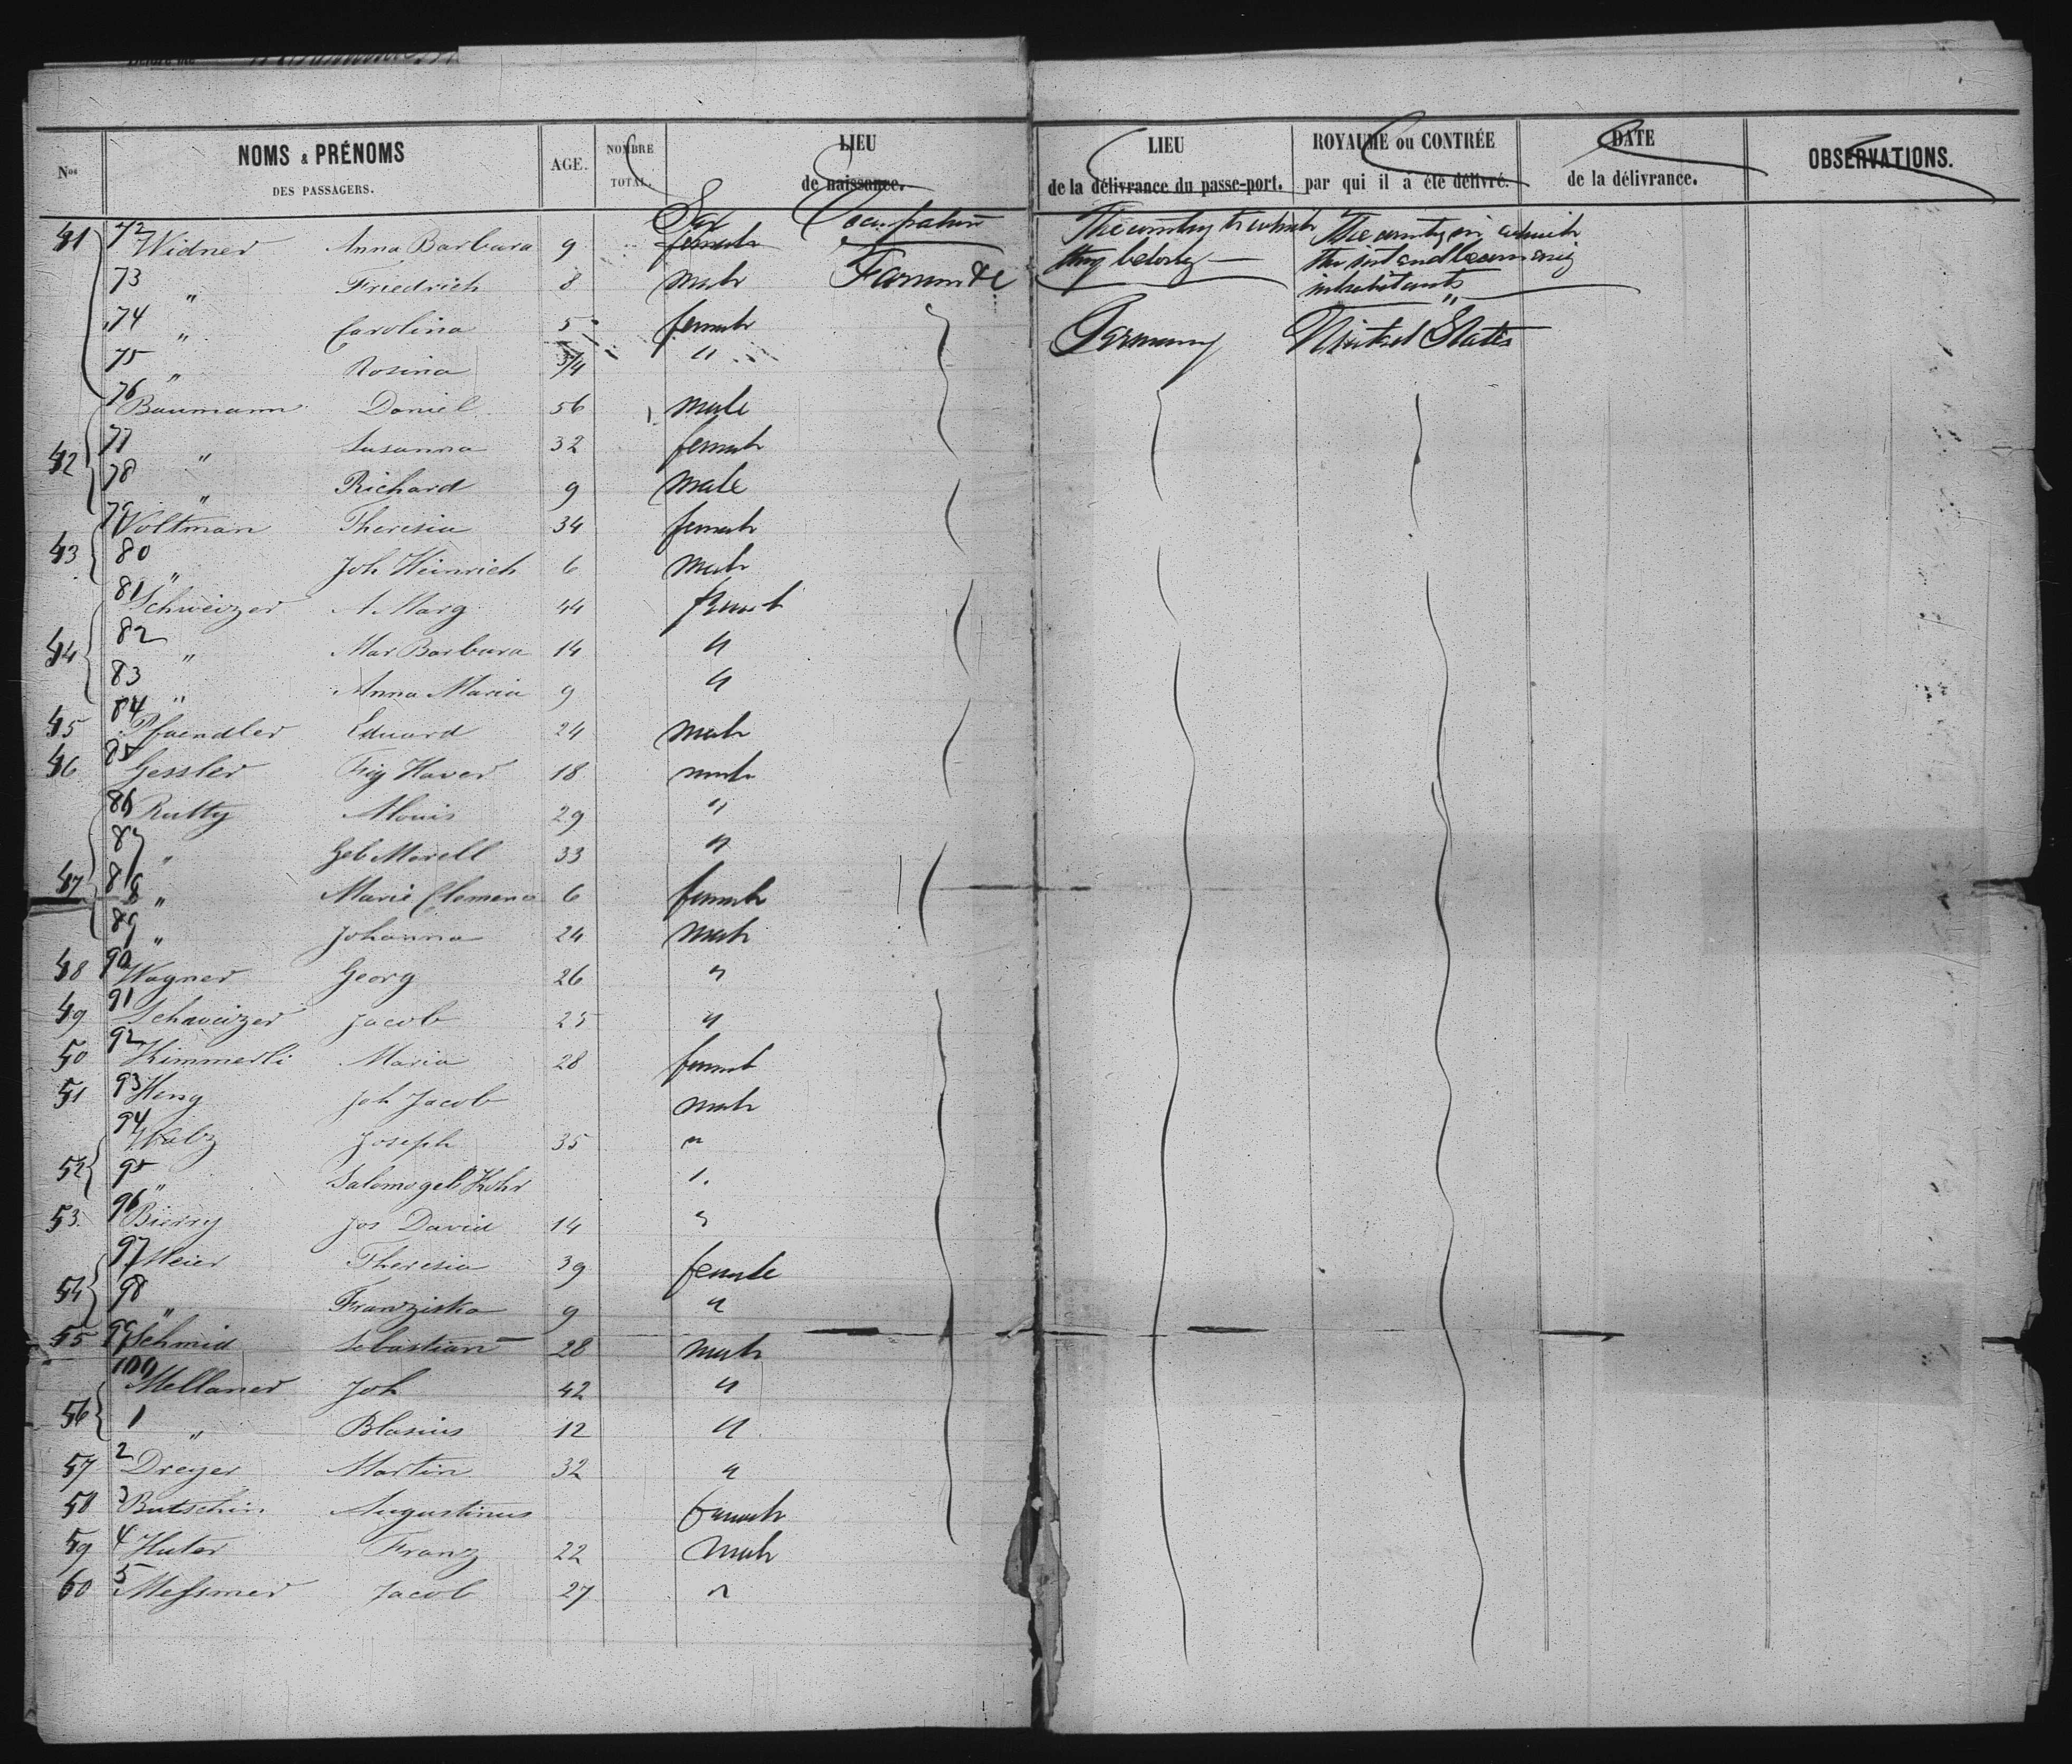 Nos NOMS & PRÉNOMS DES PASSAGERS. AGE. NOMBRE TOTAL. LIEU de naissance. LIEU de la délivrance du passe-port. ROYAUME ou CONTRÉE par qui il a été délivré. DATE de la délivrance. OBSERVATIONS.
Sex Occupation The country to which they belong The country in which they intend becoming inhabitants
41 72 Widner Anna Barbara 9 female
73 " Friedrich 8 male Farmer &c
74 " Carolina 5 female Germany United States
75 " Rosina 3/4 "
76 Baumann Daniel 56 male
42 77 " Susanna 32 female
78 " Richard 9 male
79 Voltman Theresia 34 female
43 80 " Joh Heinrich 6 male
81 Schweizer A. Marg 44 female
44 82 " Mar Barbara 14 "
83 " Anna Maria 9 "
45 84 Pfaendler Eduard 24 male
46 85 Gessler Xaver 18 male
86 Rutty Alouis 29 "
87 " Geb Morell 33 "
47 88 " Marie Clemence 6 female
89 " Johanna 24 male
48 90 Wagner Georg 26 "
49 91 Schweizer Jacob 25 "
50 92 Kimmerli Maria 28 female
51 93 Heng Joh Jacob male
94 Walz Joseph 35 "
52 95 " Salome geb Kohr "
53 96 Bierry Jos David 14 "
97 Meier Theresia 39 female
54 98 " Franziska 9 "
55 99 Schmid Sebastian 28 male
100 Mellaner Joh 42 "
56 1 " Blasius 12 "
57 2 Dreyer Martin 32 "
58 3 Augustinus female
59 4 Huter Franz 22 male
60 5 Messmer Jacob 27 "